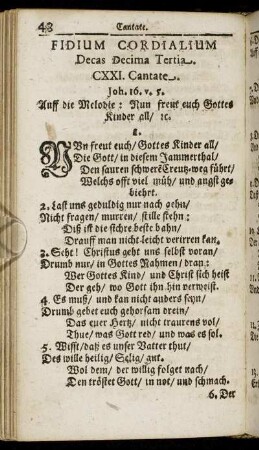 48 Cantate.
FIDIUM CORDIALIUM
Decas Decima Tertia.
CXXI. Cantate.
Joh. 16. v. 5.
Auff die Melodie: Nun freut euch Gottes
Kinder all/ ꝛc.
1.
NUn freut euch/ Gottes Kinder all/
Die Gott/ in diesem Jammerthal/
Den sauren schwerē Creutz-weg führt/
Welchs offt viel müh/ und angst ge-
biehrt.
2. Last uns geduldig nur nach gehn/
Nicht fragen/ murren/ stille stehn:
Diß ist die rechte bahn/
Drauff man nicht leicht verirren kan.
3. Seht! Christus geht uns selbst voran/
Drumb nur/ in Gottes Nahmen/ dran:
Wer Gottes Kind/ und Christ sich heist
Der geh/ wo Gott ihn hin verweist.
4. Es muß/ und kan nicht anders seyn/
Drumb gebet euch gehorsam drein/
Das euer Hertz/ nicht traurens vol/
Thue/ was Gott red/ und was es sol.
5. Wisst/ daß es unser Vatter thut/
Des wille heilig/ Selig/ gut.
Wol dem/ der willig folget nach/
Den tröstet Gott/ in not/ und schmach.
6. Der